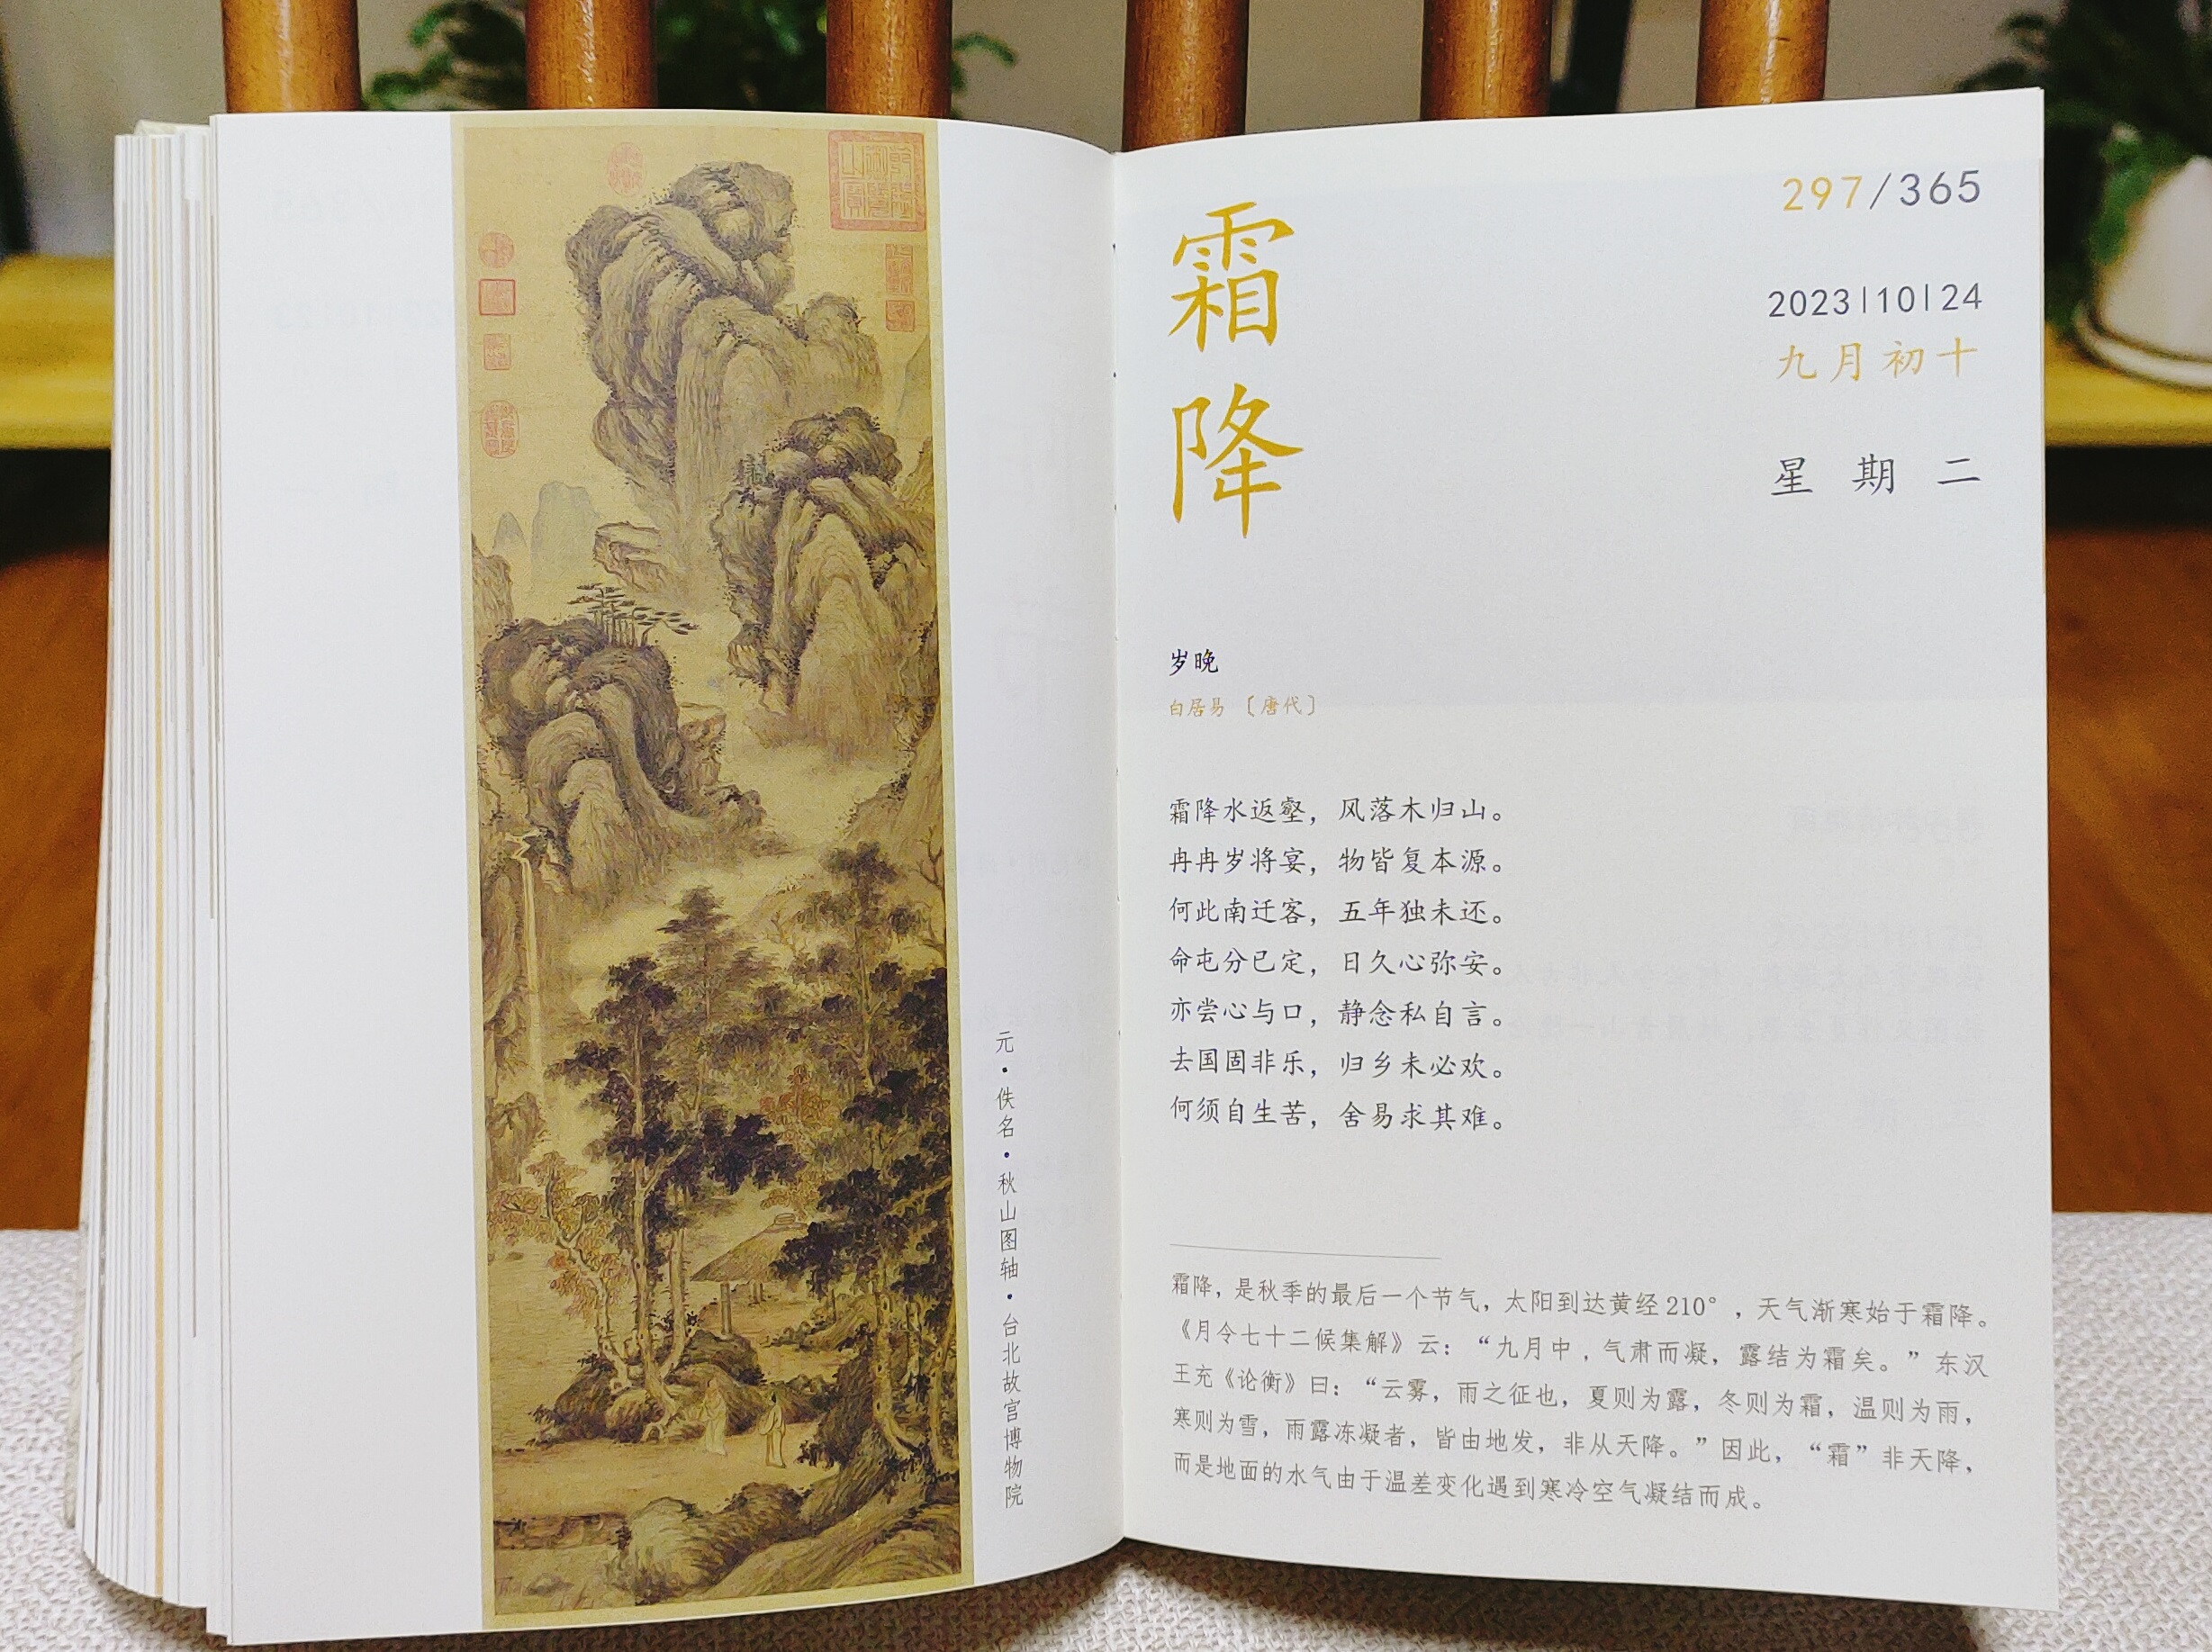 元·佚名·秋山图轴·台北故宫博物院
297/365
霜降
2023|10|24
九月初十
星期二
岁晚
白居易〔唐代〕
霜降水返壑，风落木归山。
冉冉岁将宴，物皆复本源。
何此南迁客，五年独未还。
命屯分已定，日久心弥安。
亦尝心与口，静念私自言。
去国固非乐，归乡未必欢。
何须自生苦，舍易求其难。
霜降，是秋季的最后一个节气，太阳到达黄经210°，天气渐寒始于霜降。
《月令七十二候集解》云：“九月中，气肃而凝，露结为霜矣。”东汉
王充《论衡》曰：“云雾，雨之征也，夏则为露，冬则为霜，温则为雨，
寒则为雪，雨露冻凝者，皆由地发，非从天降。”因此，“霜”非天降，
而是地面的水气由于温差变化遇到寒冷空气凝结而成。